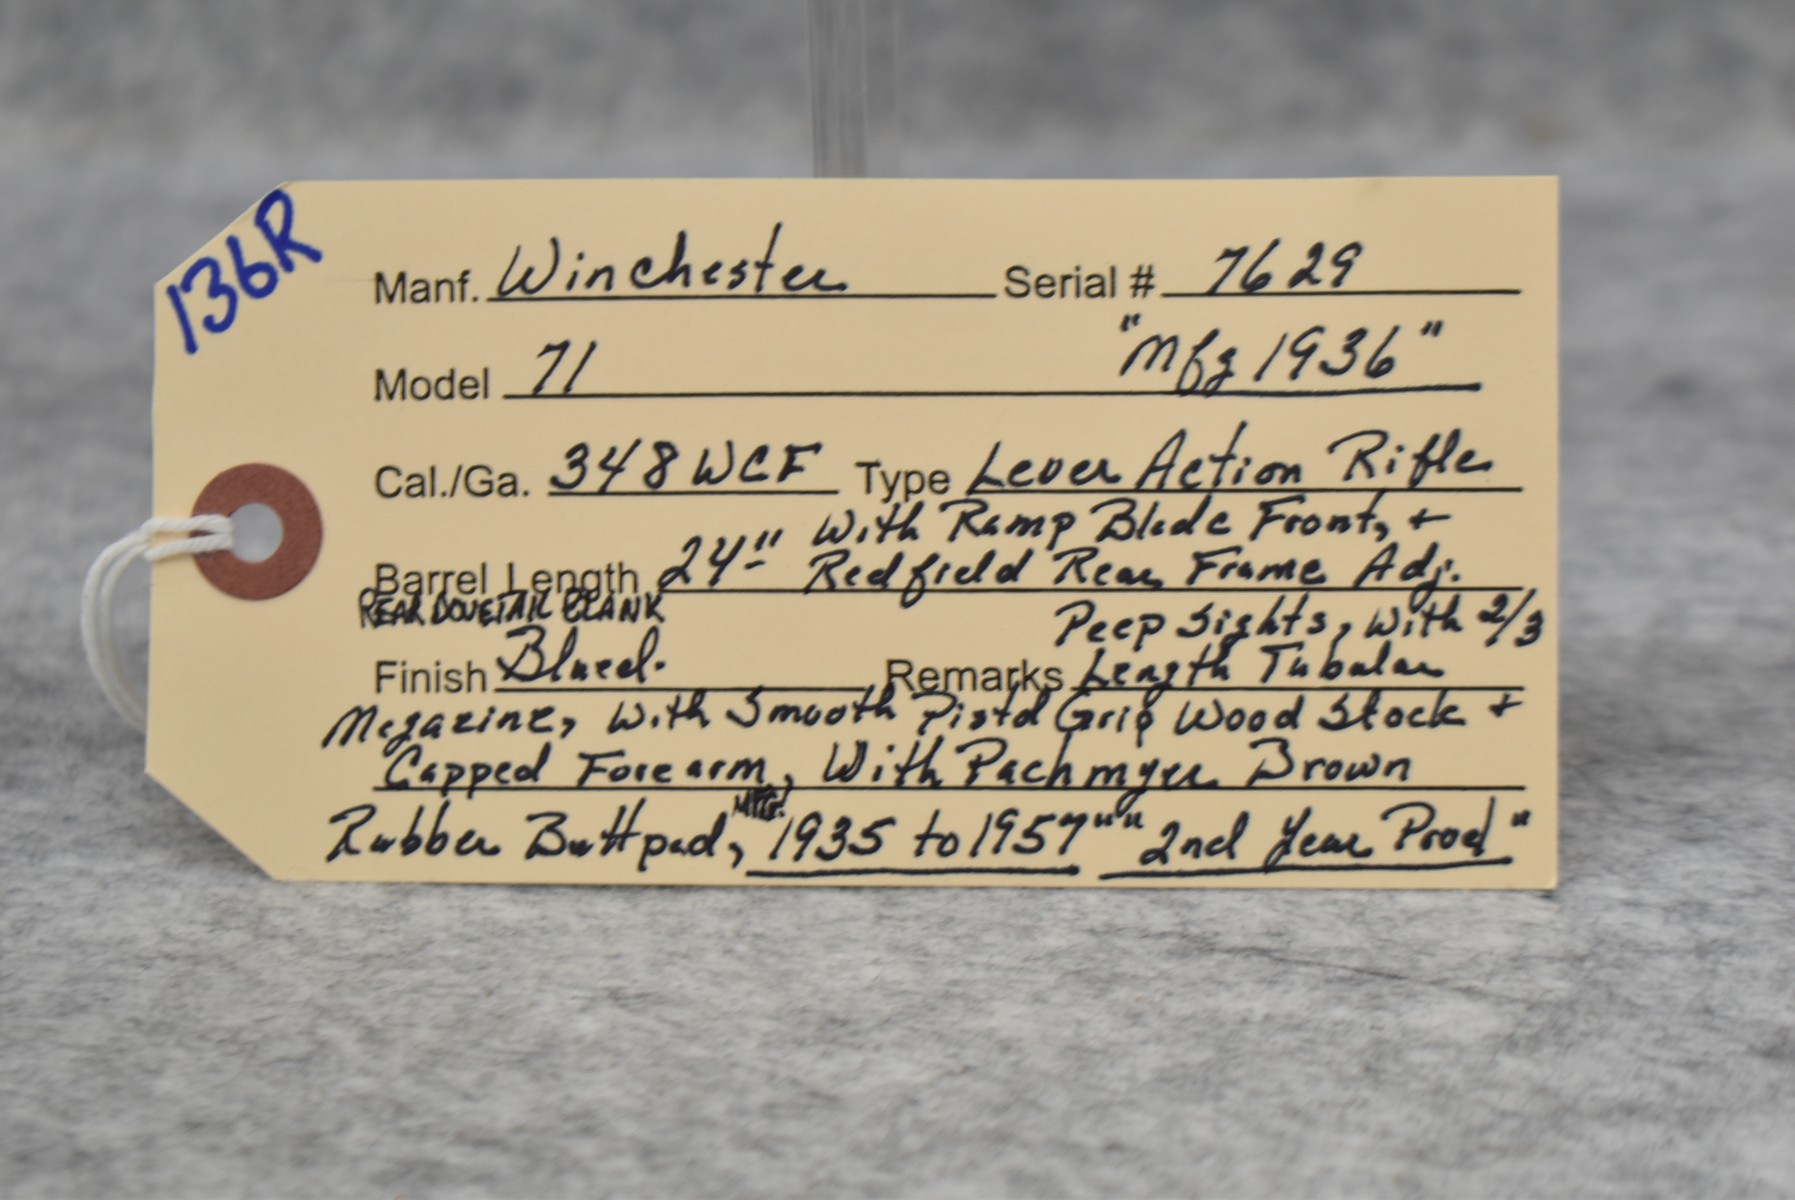 136R
Manf. Winchester Serial # 7629
Model 71 "Mfg 1936"
Cal./Ga. 348 WCF Type Lever Action Rifle
With Ramp Blade Front, +
Barrel Length 24" Redfield Rear Frame Adj.
REAR DOVETAIL BLANK Peep Sights, With 2/3
Finish Blued. Remarks Length Tubular
Magazine, With Smooth Pistol Grip Wood Stock +
Capped Forearm, With Pachmyer Brown
Rubber Buttpad, MFG. 1935 to 1957" "2nd Year Prod"